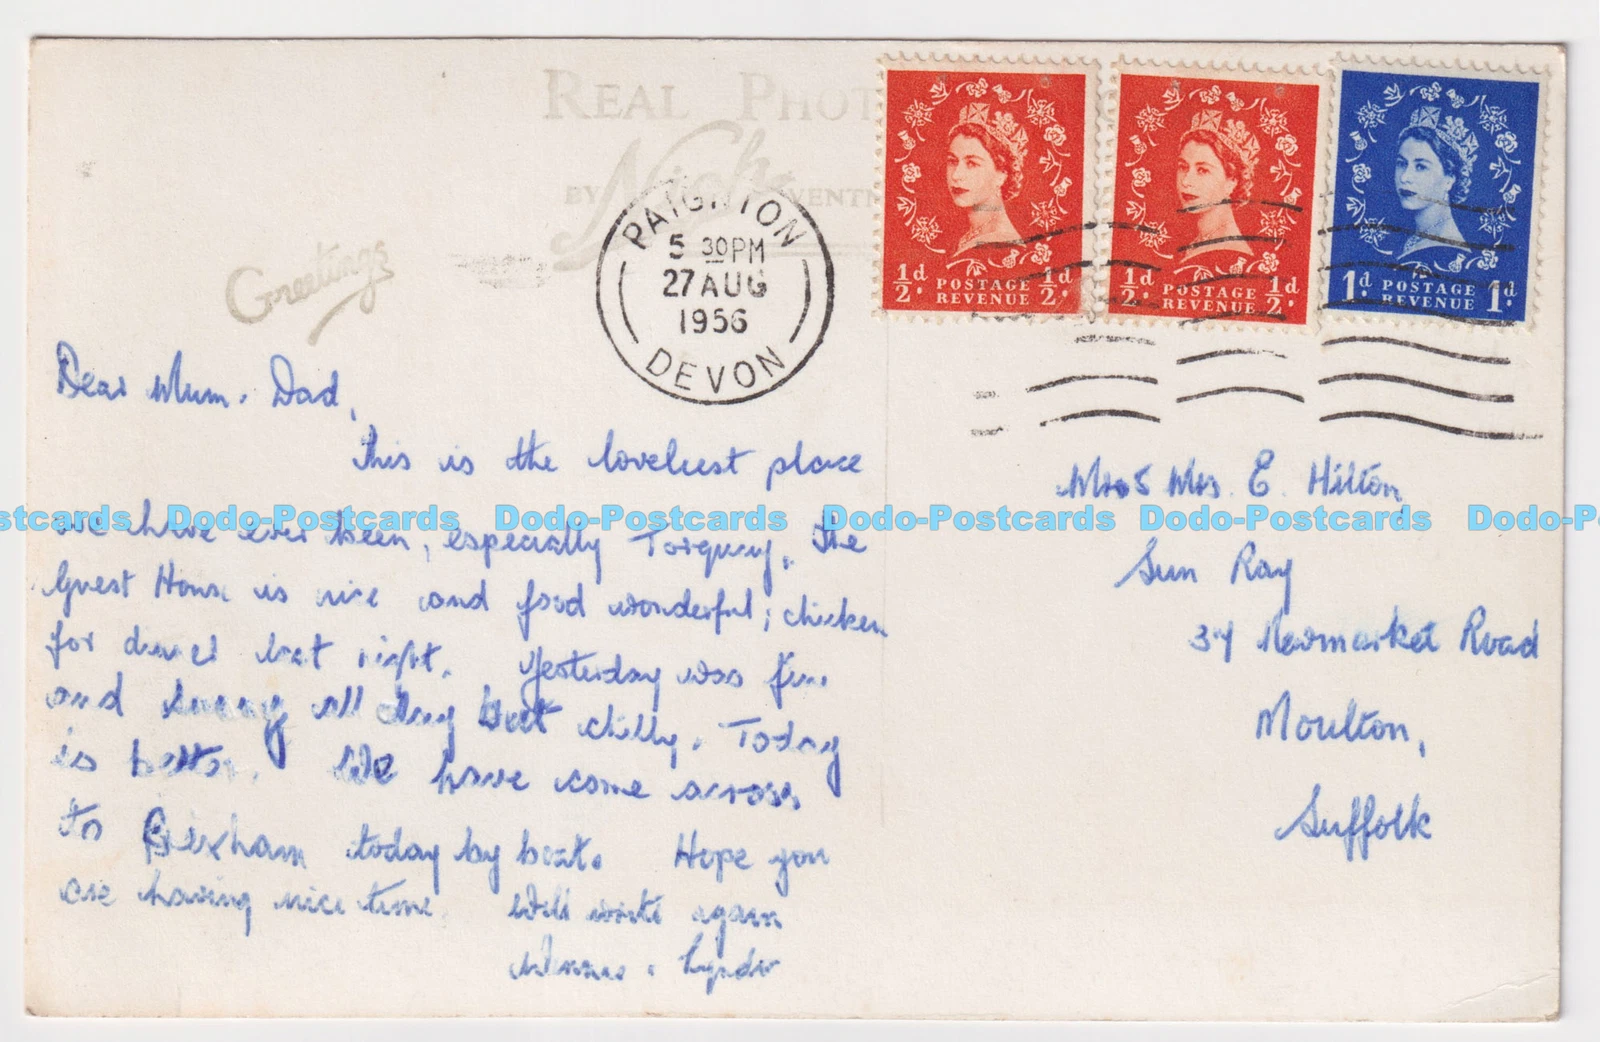 REAL PHOT
BY Nigh VENTN
Greetings
PAIGNTON
5 30PM
27 AUG
1956
DEVON
½d ½d
POSTAGE
REVENUE
½d ½d
POSTAGE
REVENUE
1d 1d
POSTAGE
REVENUE
Dear Mum. Dad,
This is the loveliest place
we have ever been, especially Torquay. The
Guest House is nice and food wonderful; chicken
for dinner last night. Yesterday was fine
and sunny all day but chilly. Today
is better. We have come across
to Brixham today by boat. Hope you
are having nice time. Will write again
Lynda
Mr & Mrs. E. Hilton
Sun Ray
Newmarket Road
Moulton,
Suffolk
stcards Dodo-Postcards Dodo-Postcards Dodo-Postcards Dodo-Postcards Dodo-P